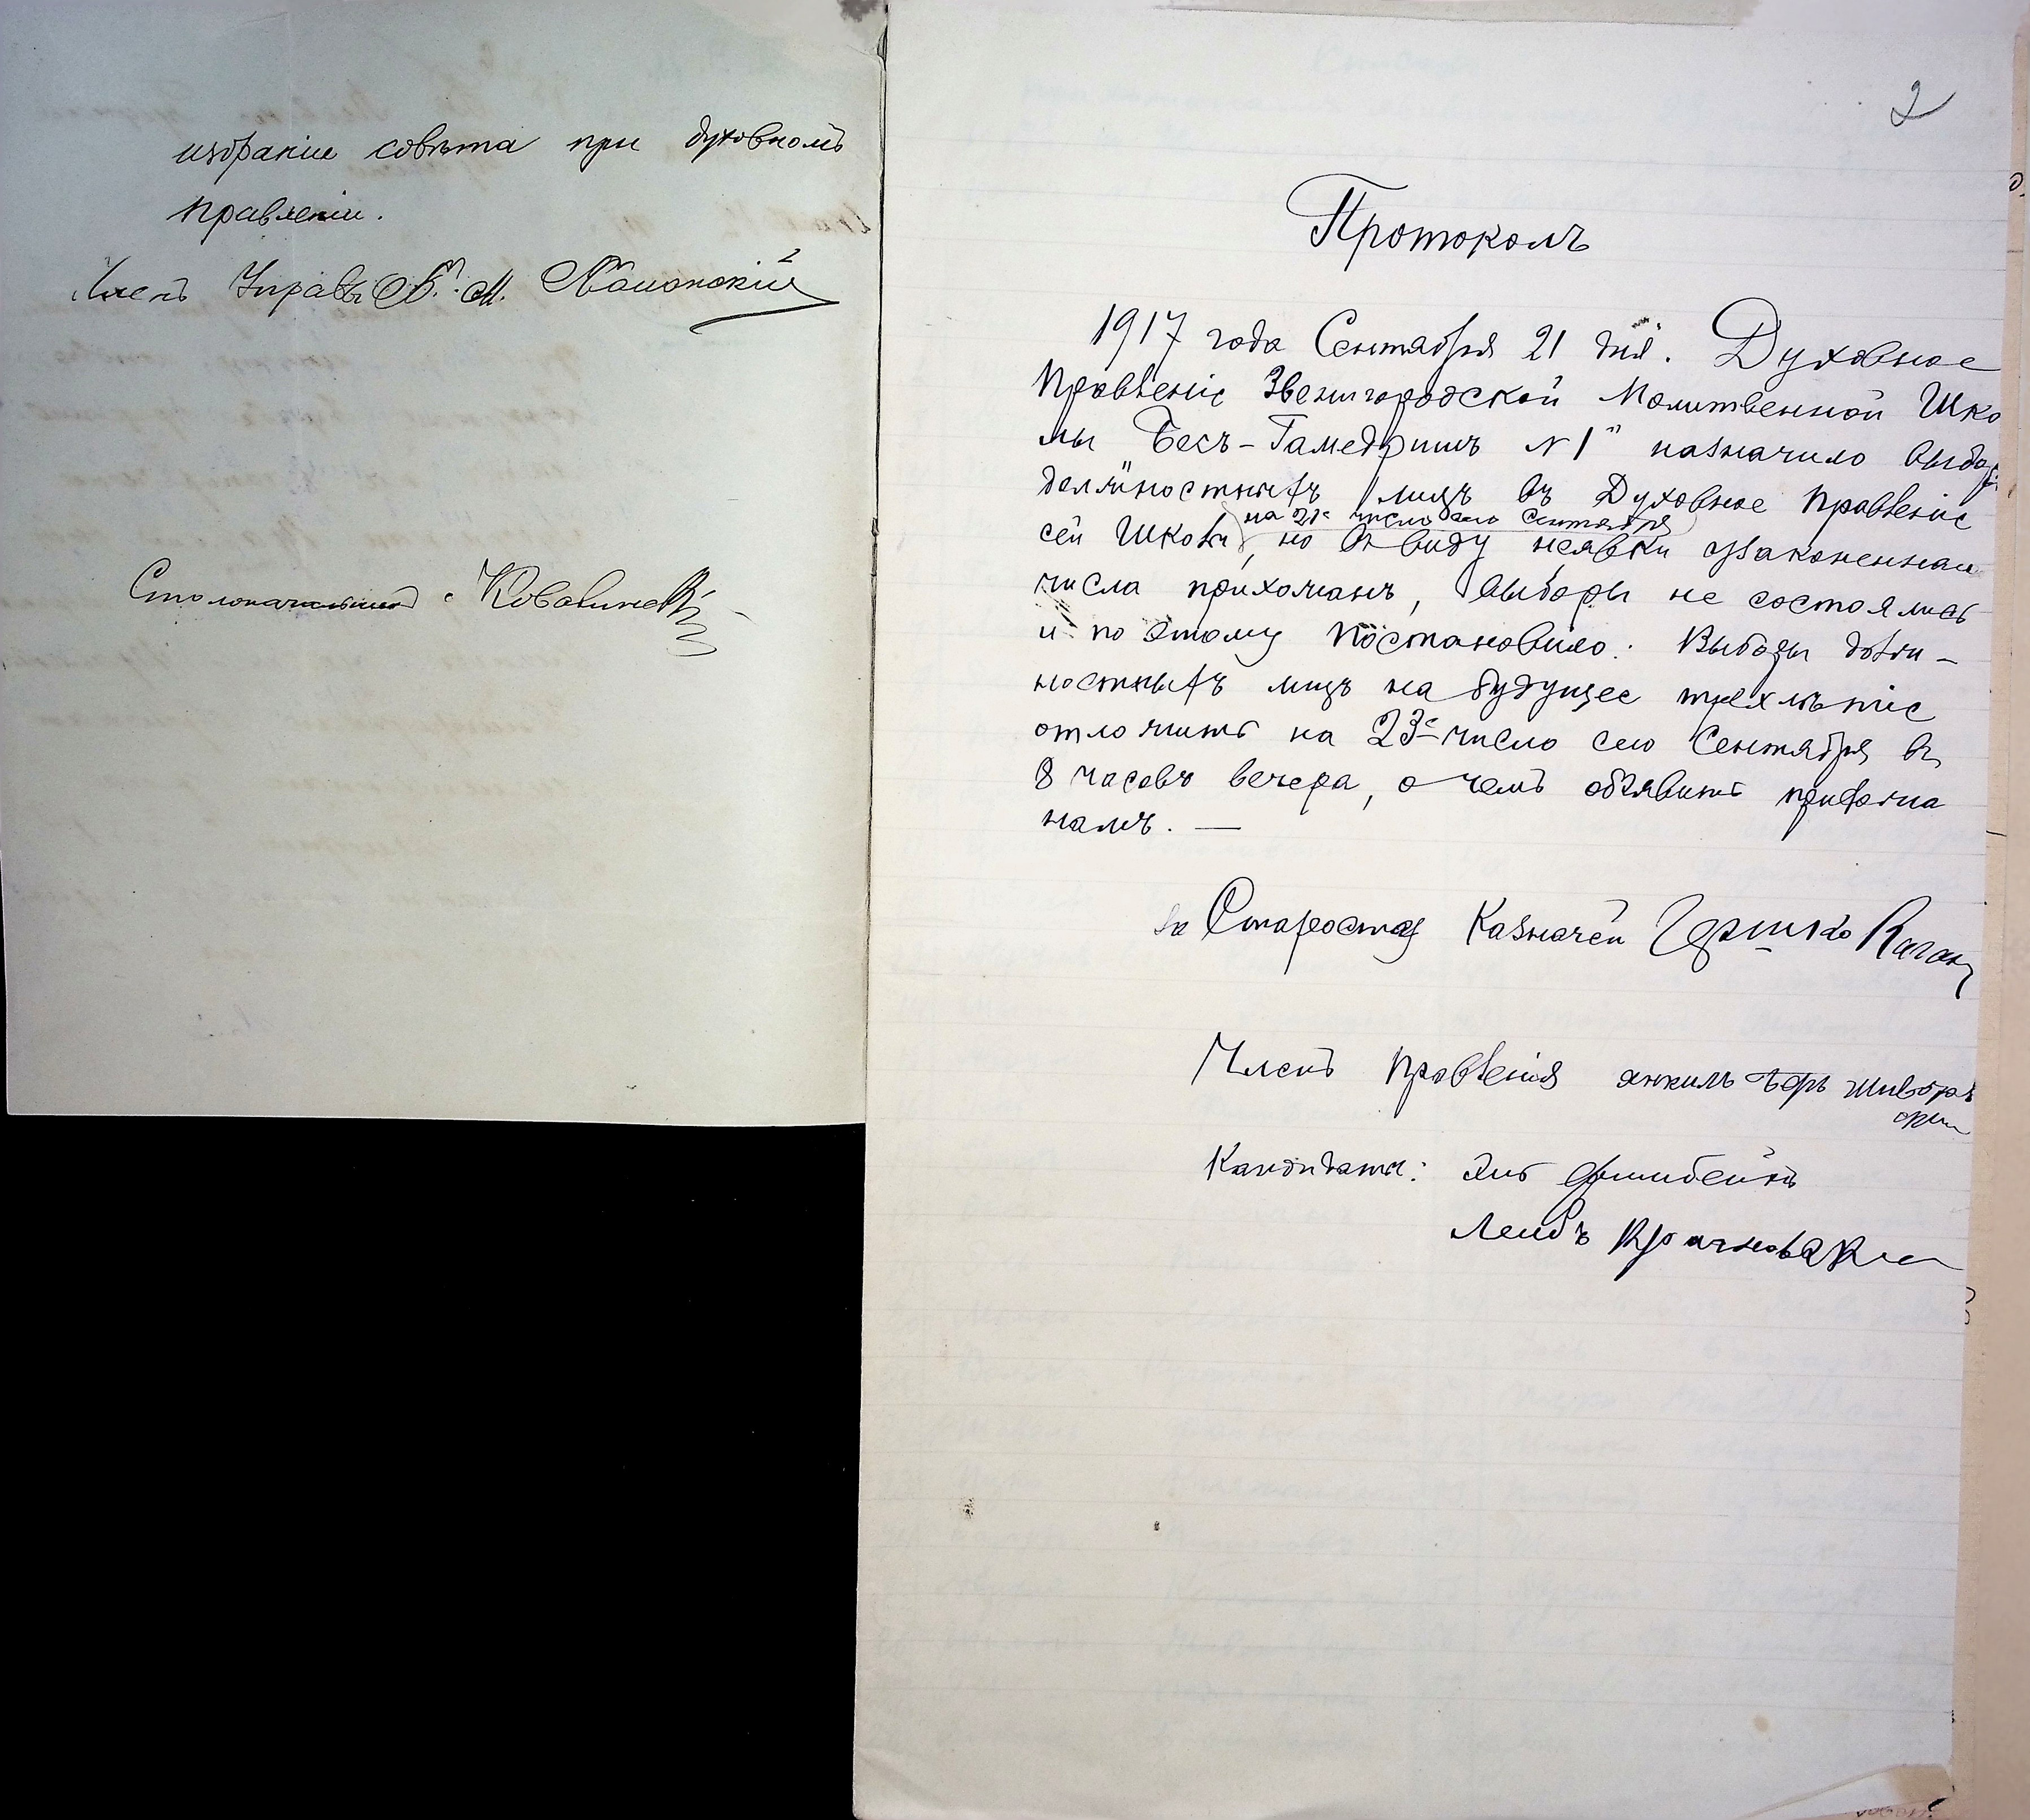 избраніи совѣта при духовномъ
правленіи.
Членъ Управы
Столоначальникъ
2
Протоколъ
1917 года Сентября 21 дня. Духовное
Правленіе Звенигородской Молитвенной Шко
лы "Бесъ-Гамедришъ №1" назначило выборы
должностныхъ лицъ въ Духовное Правленіе
на 21е число сего Сентября
сей Школы, но въ виду неявки узаконеннаго
числа прихожанъ, выборы не состоялись
и по этому постановило: Выборы долж-
ностныхъ лицъ на будущее трехлѣтіе
отложить на 23е число сего Сентября въ
8 часовъ вечера, о чемъ объявить прихожа
намъ. —
За Старосту Казначей Гершко Каганъ
Членъ Правленія
Кандидаты:
Лейбъ